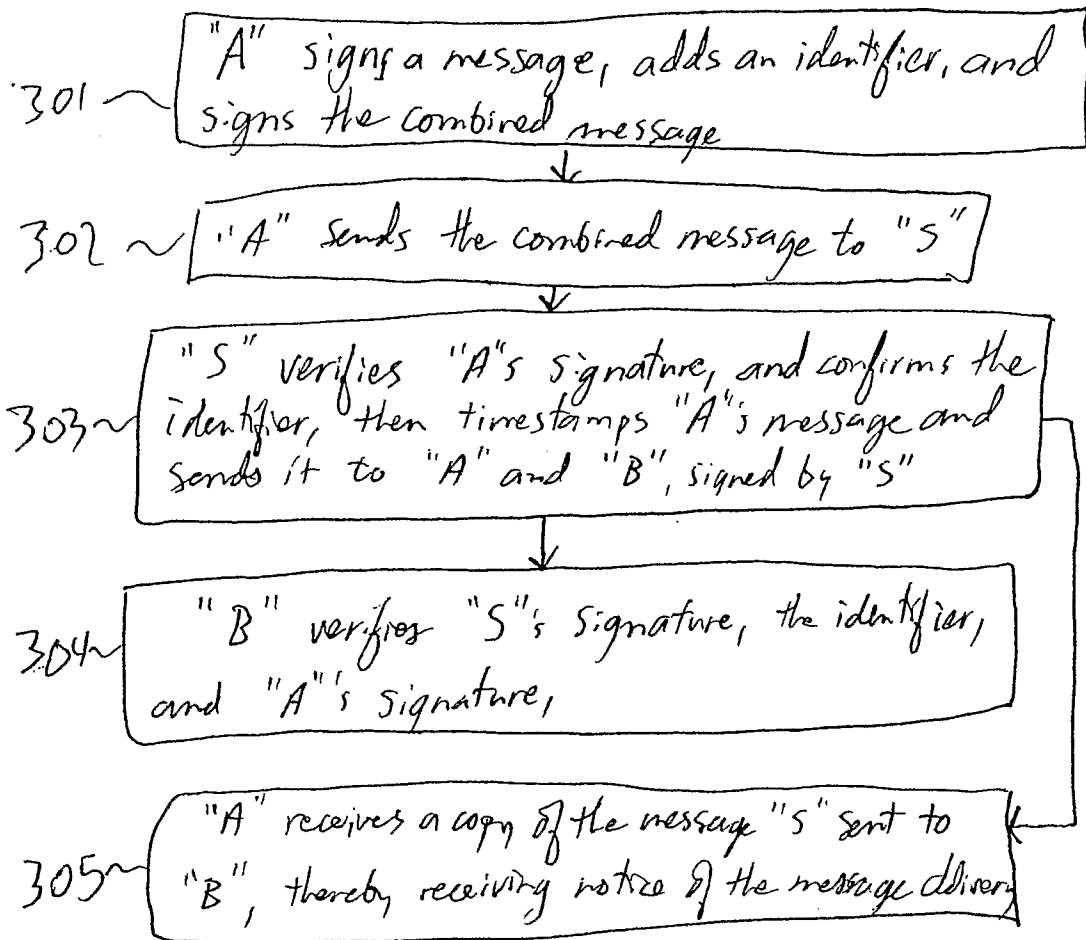 301 "A" signs a message, adds an identifier, and
signs the combined message
302 "A" sends the combined message to "S"
"S" verifies "A"s signature, and confirms the
303 identifier, then timestamps "A"'s message and
sends it to "A" and "B", signed by "S"
304 "B" verifies "S"'s signature, the identifier,
and "A"'s signature,
"A" receives a copy of the message "S" sent to
305 "B", thereby receiving notice of the message delivery